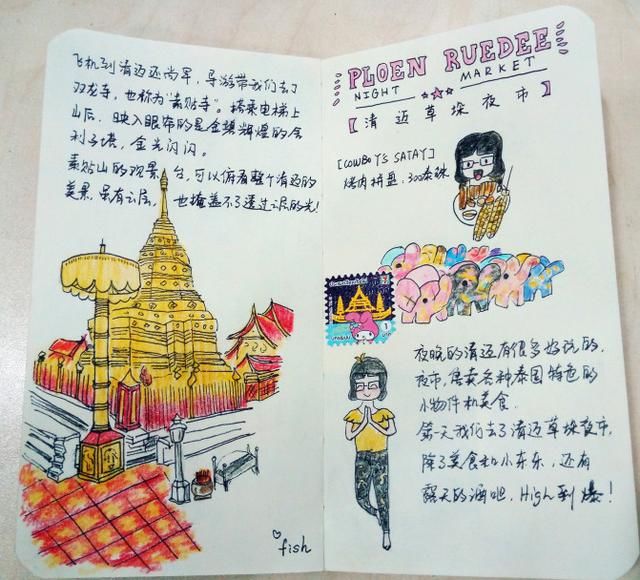 飞机到清迈还尚早，导游带我们去了
双龙寺，也称为“素贴寺”。搭乘电梯上
山后，映入眼帘的是金碧辉煌的舍
利子塔，金光闪闪。
素贴山的观景台，可以俯看整个清迈的
美景，虽有云层，也掩盖不了透过云层的光！
fish
PLOEN RUEDEE
NIGHT MARKET
【清迈草垛夜市】
[COWBOYS SATAY]
烤肉拼盘：300泰铢
1
夜晚的清迈有很多好玩的，
夜市，售卖各种泰国特色的
小物件和美食。
第一天我们去了清迈草垛夜市，
除了美食和小东东，还有
露天的酒吧，High到爆！